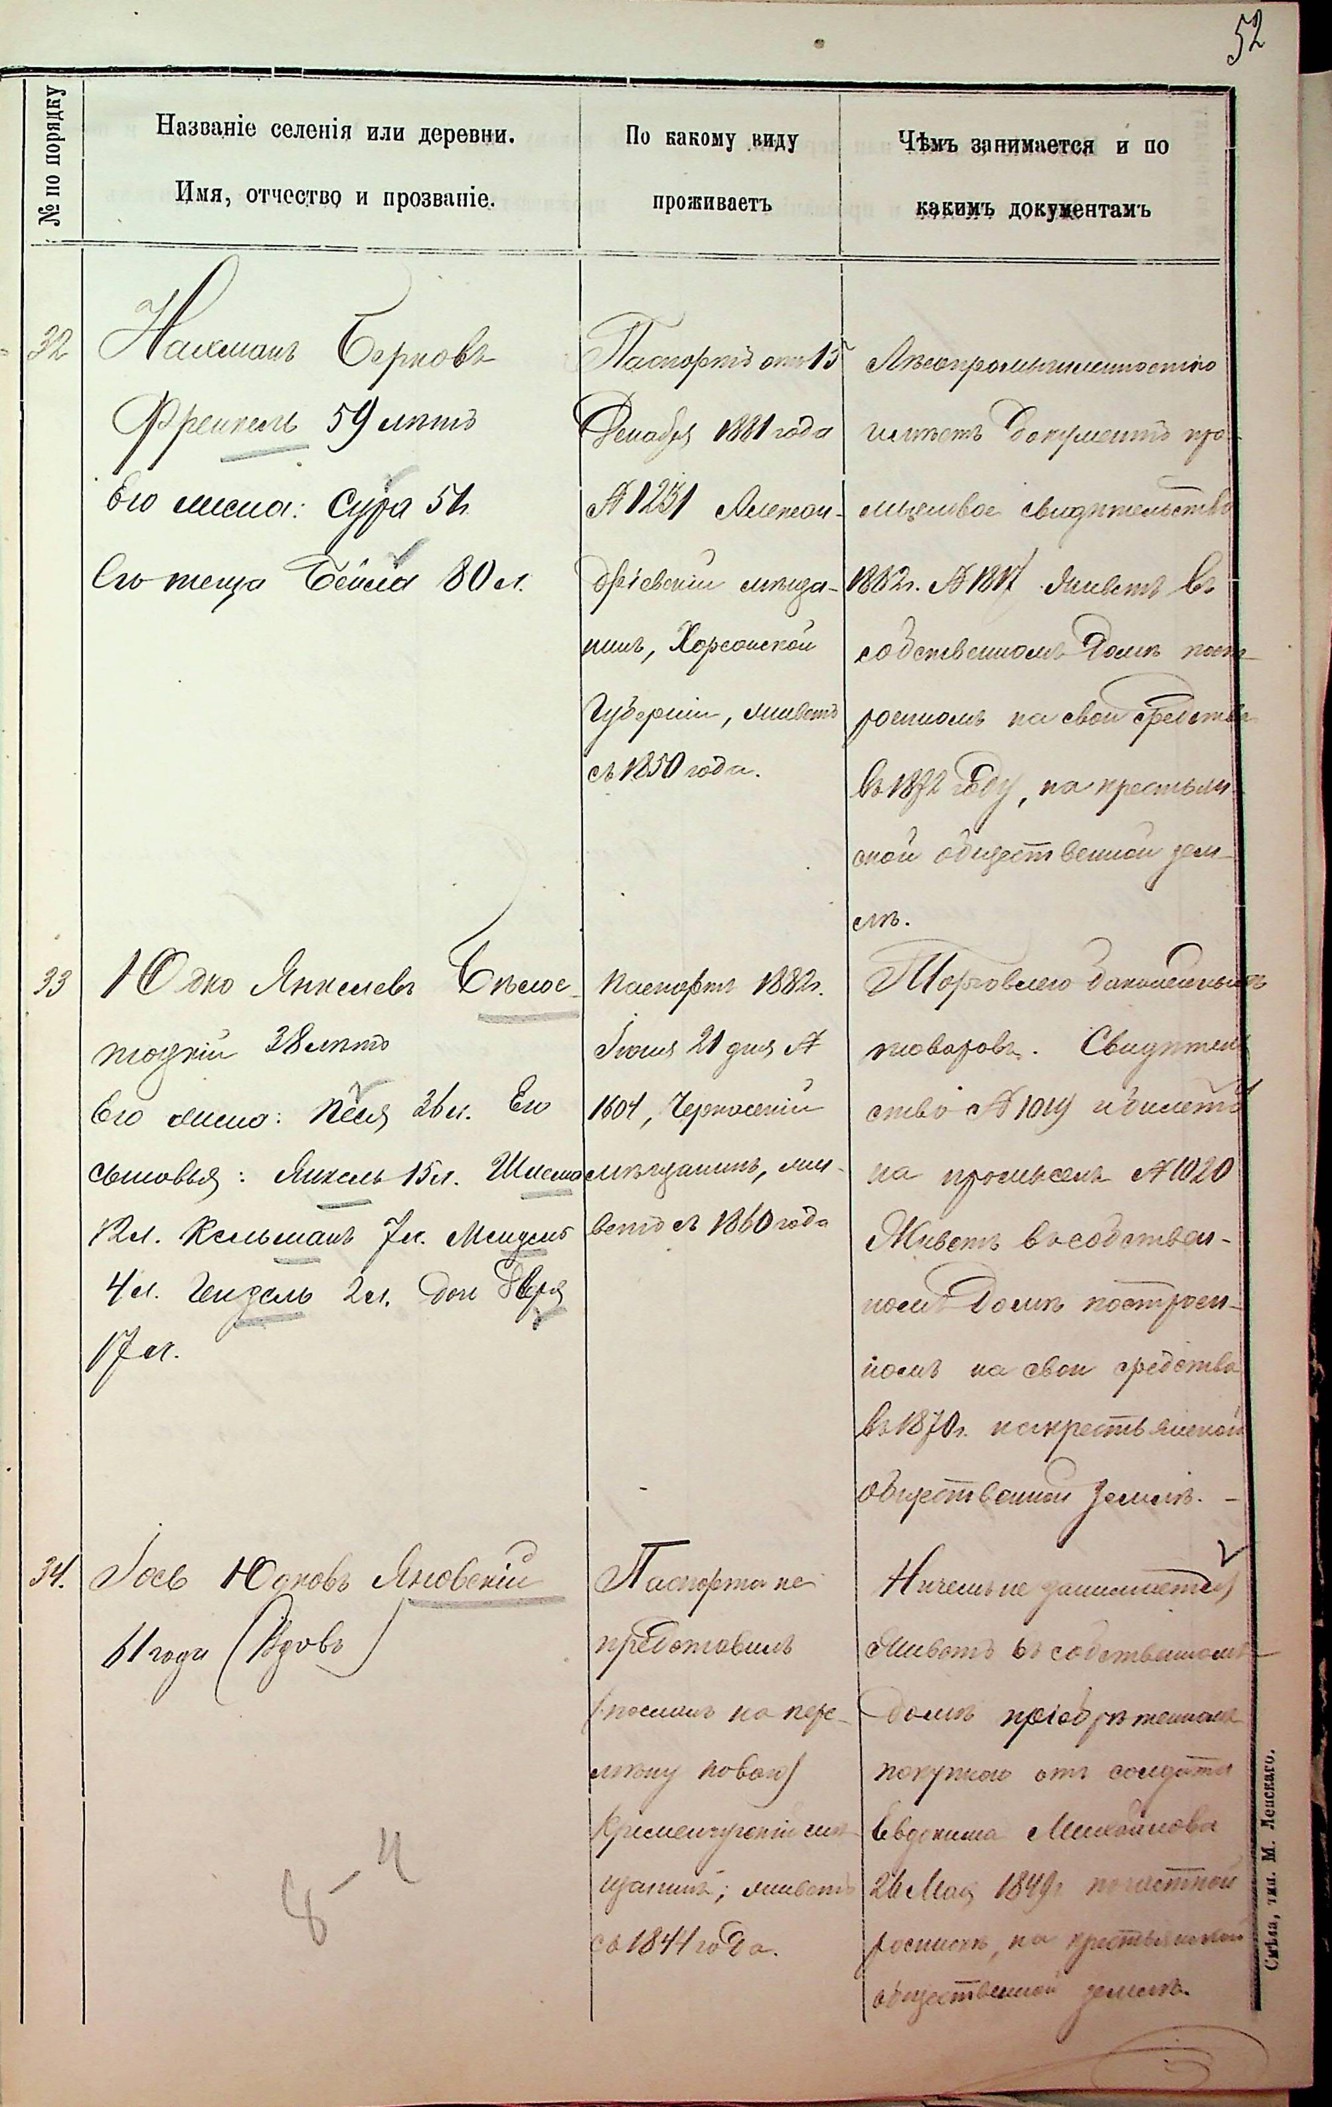 52
№ по порядку
Названіе селенія или деревни.
Имя, отчество и прозваніе.
По какому виду
проживаетъ
Чѣмъ занимается и по
какимъ документамъ
32
Нахманъ Берковъ
Френкель 59 лѣтъ
Его жена: Сура 51г.
Его теща Бейла 80 л.
Паспортъ отъ 15
Декабря 1881 года
№ 1231 Алексан-
дрієвскій мѣща-
нинъ, Херсонской
Губерніи, живетъ
съ 1850 года.
Лѣсопромышленностію
имѣетъ документъ про-
мысловое свидѣтельство
1882г. № 1817 Живетъ въ
собственномъ домѣ пост-
роенномъ на свои средства
въ 1872 году, на крестьян-
ской общественной зем-
лѣ.
33
Юдко Янкелевъ Бѣлос-
тоцкій 38 лѣтъ
Его жена: Песя 36 л. Его
сыновья: Янкель 15 л. Шлема
12 л. Кельманъ 7 л. Мендель
4 л. Гендель 2 л. дочь Двера
17 л.
Паспортъ 1882г.
Іюля 21 дня №
1604, Черкаскій
мѣщанинъ, жи-
ветъ съ 1860 года
Торговлею бакалейныхъ
товаровъ. Свидѣтель
ство № 1019 и билетъ
на промыселъ № 1020
Живетъ въ собствен-
номъ домѣ построен-
номъ на свои средства
въ 1870г. на крестьянской
общественной землѣ. -
34.
Іось Юдковъ Яновскій
61 года (вдовъ)
Паспорта не
представилъ
(посланъ на пере-
мѣну новаго)
Кременчугскій мѣ-
щанинъ; живетъ
съ 1844 года.
Ничемъ не занимается
Живетъ въ собственномъ
домѣ пріобрѣтенномъ
покупкою отъ солдата
Евдокима Михайлова
26 Мая 1849г по частной
роспискѣ, на крестьянской
общественной землѣ.
8-4
Смѣла, тип. М. Ленскаго.